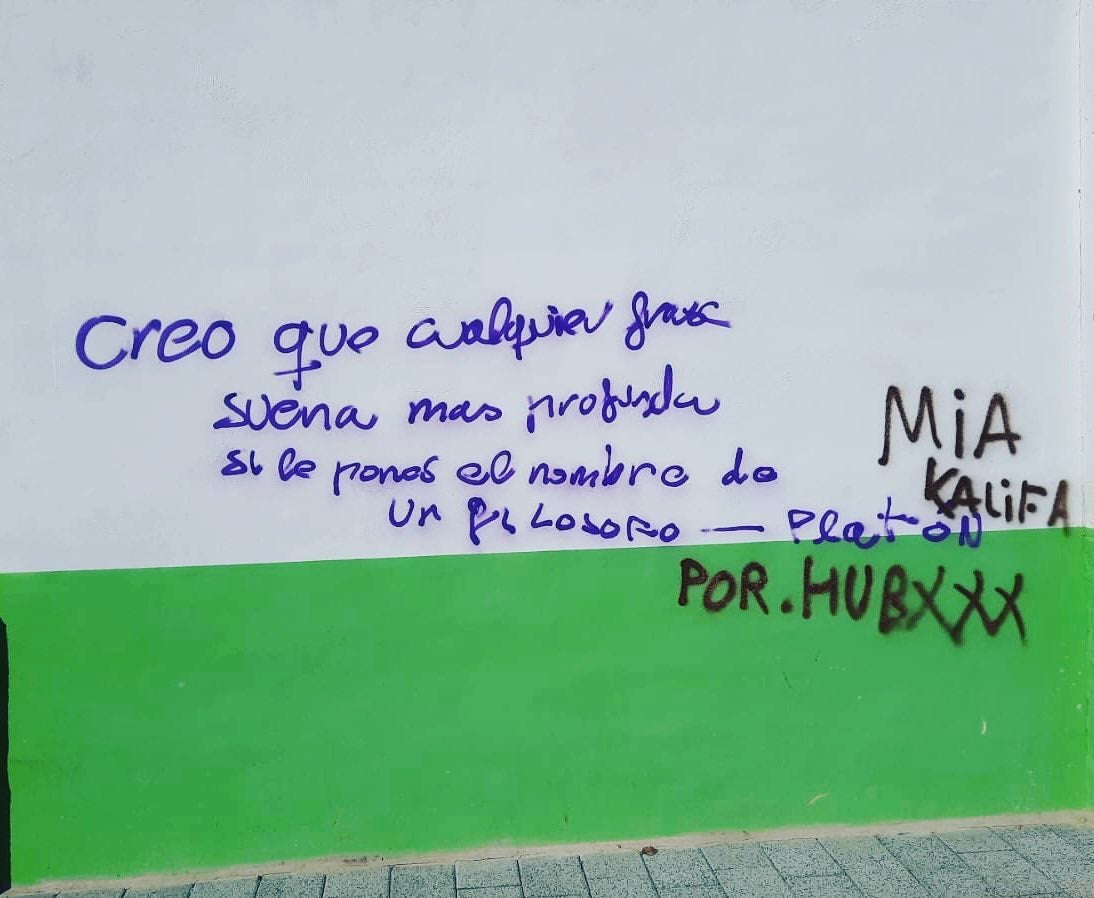 Creo que cualquier frase
suena mas profunda
si le pones el nombre de
un filosofo — Platon
MiA
KALiFA
POR.HUBXXX